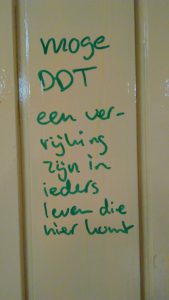 moge
DDT
een ver-
rijking
zijn in
ieders
leven die
hier komt